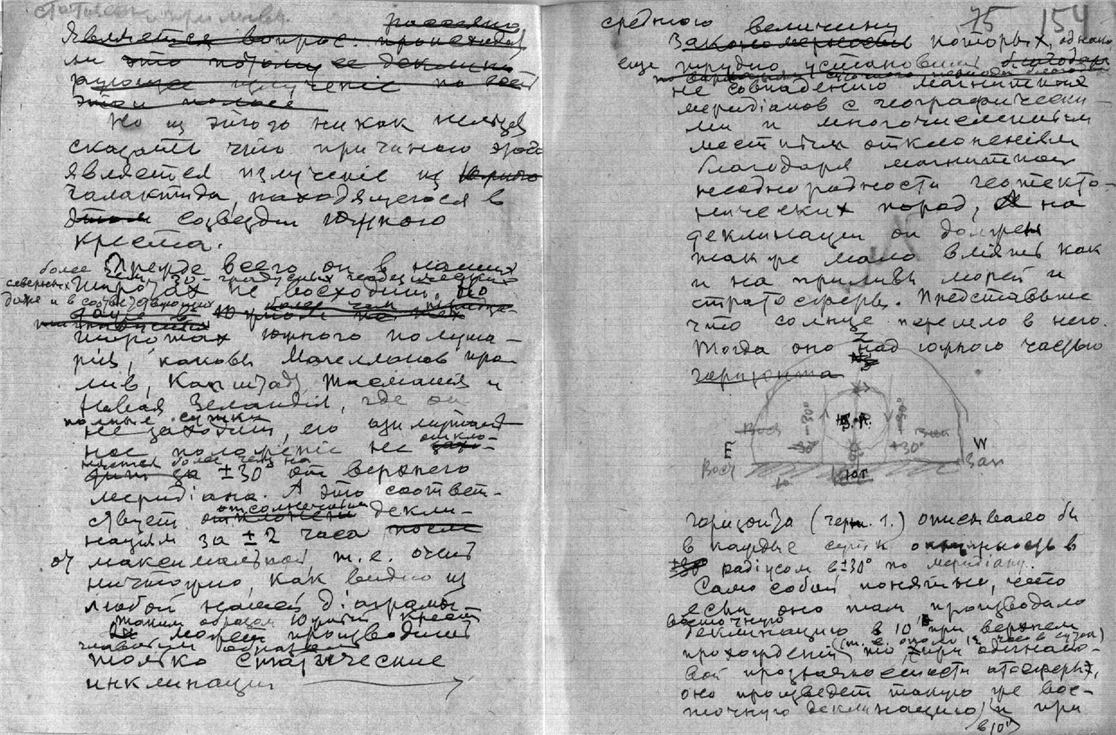 является вопрос. происходит
ли это потому ее деклина
излучение по всей
этой полосе
Но из этого никак нельзя
сказать что причиною этого
является излучение из
галактида, находящегося в
созвездии Южного
креста.
Прежде всего он в наших
более чем 30-градусных
северных широтах не восходит. Но
даже в соответствующих
широтах южного полуша-
рия, каковы Магелланов про-
лив, Капштадт, Тасмания и
Новая Зеландия, где он
полные сутки
не заходит, его азимутналь-
ное положение не откло-
няется более чем на
за ±30° от верхнего
меридиана. А это соответ-
ствует отклонению декли-
нации за ±2 часа после
от максимальной, т.е. очень
ничтожно, как видно из
любой нашей диаграммы.
Таким образом Южный Крест
может производить
главным образом
только статические
инклинации
75 154
среднего величины
Закономерность которых, однако
еще трудно установить благодаря
не совпадению магнитных
меридианов с географически-
ми и многочисленным
местным отклонениям
благодаря магнитной
неоднородности геотекто-
нических пород, А на
деклинации он должен
также мало влиять как
и на приливы морей и
стратосферы. Представьте
что солнце перешло в него.
Тогда оно над южного частью
горизонта
Z
Вост -30° -30° Зап
+30°
E W
Вост Зап
Юг
горизонта (черт. 1.) описывало бы
в каждые сутки окружность в
±30 радиусом в ±30° по меридиану.
Само собой понятно, что
если оно там производило
восточную
деклинацию в 10' при верхнем
(т.е. около 12 часов сутки)
прохождении, то при одинако-
вой прозрачности атсферы,
оно произведет такую же вос-
точную деклинацию и при
в 10'